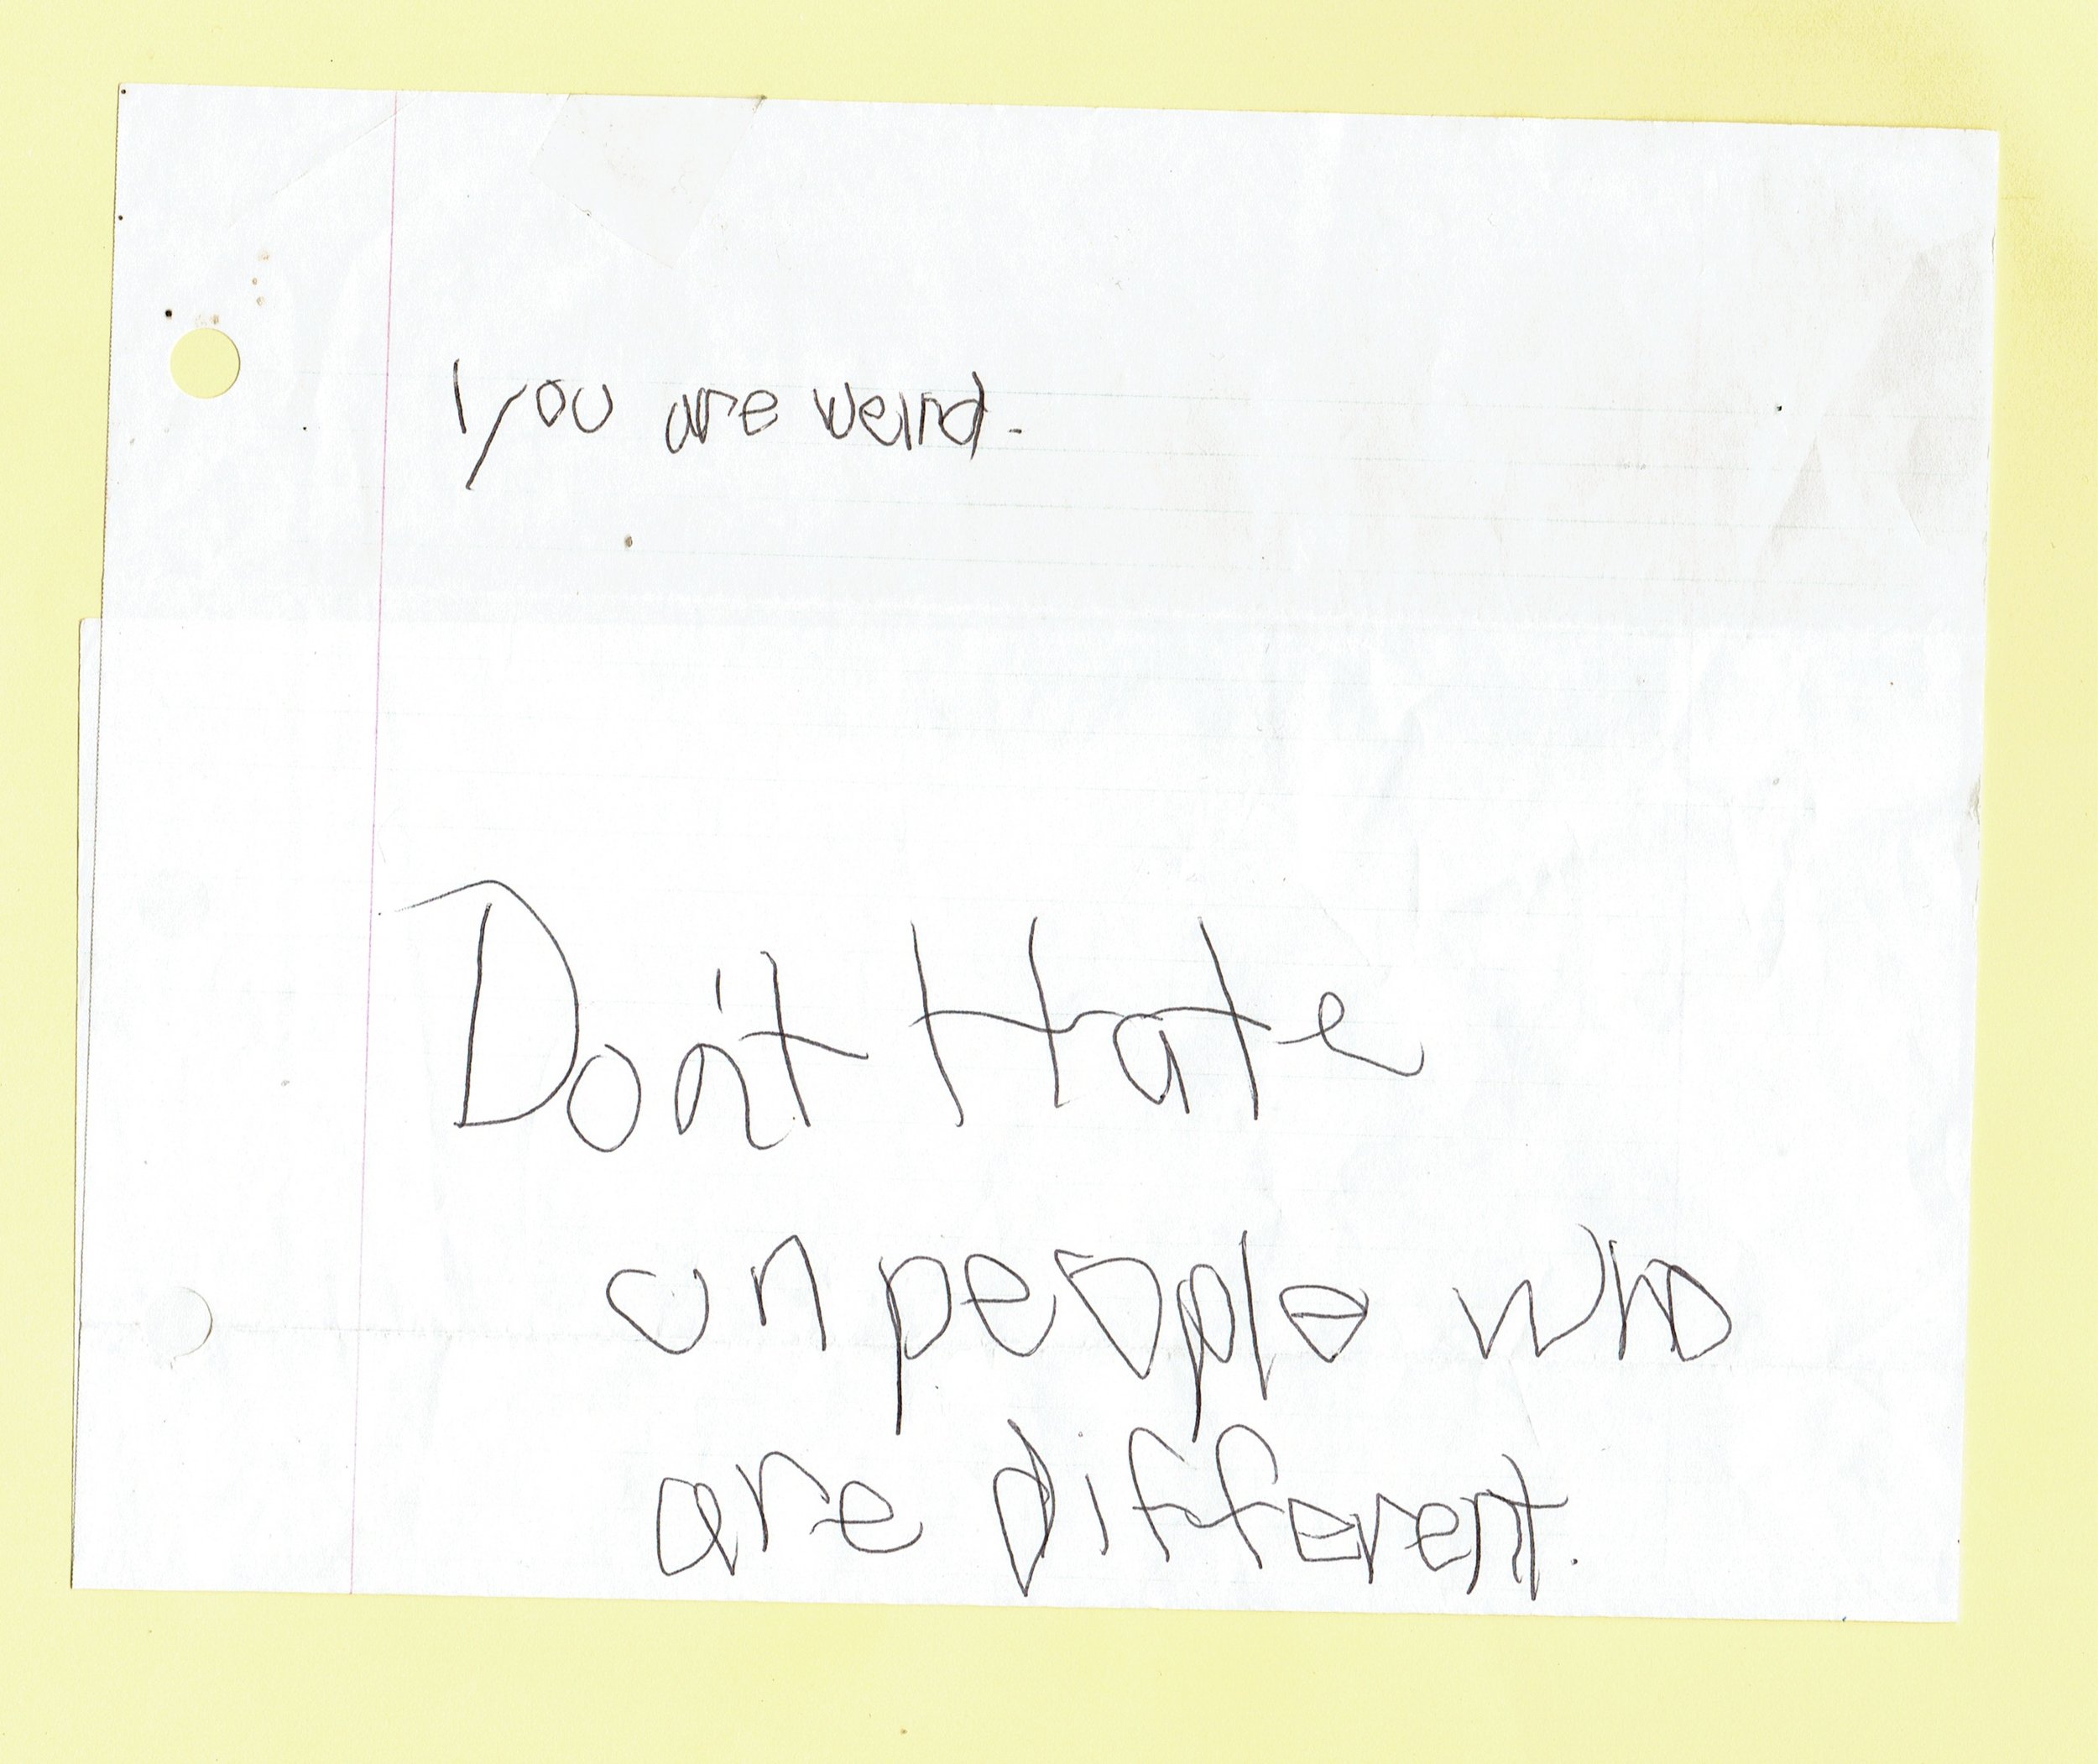 you are weird.
Don't Hate
on people who
are different.